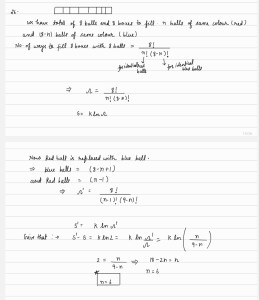 Sol:-
We have total of 8 balls and 8 boxes to fill. n balls of same colour (red)
and (8-n) balls of same colour (blue)
No of ways to fill 8 boxes with 8 balls = 8! / n! (8-n)!
for identical red balls for identical blue balls
⇒ Ω = 8! / n! (8-n)!
S = k ln Ω
Now Red ball is replaced with blue ball.
⇒ blue balls = (8-n+1)
and Red balls = (n-1)
⇒ Ω' = 8! / (n-1)! (9-n)!
S' = k ln Ω'
Given that :→ S' - S = k ln 2 = k ln Ω'/Ω = k ln (n / 9-n)
2 = n / 9-n ⇒ 18-2n = n
n = 6
n = 6